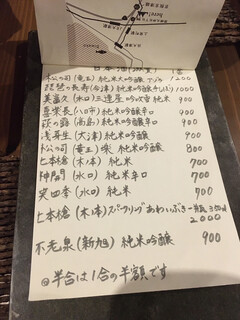 日本酒(滋賀) 1合
松の司(竜王)純米大吟醸 1200
琵琶の長寿(今津)純米大吟醸 1000
美冨久(水口)三連星 吟吹雪 純米 900
喜楽長(八日市)純米吟醸辛口 900
萩乃露(高島)純米吟醸辛口 900
浅茅生(大津)純米吟醸 900
松の司(竜王)楽 純米吟醸 800
七本槍(木本)純米 700
神開(水口)純米辛口 700
笑四季(水口)純米 700
七本槍(木本)スパークリングあわいぶき 一瓶 360ml 2000
不老泉(新旭)純米吟醸 900
@半合は1合の半額です